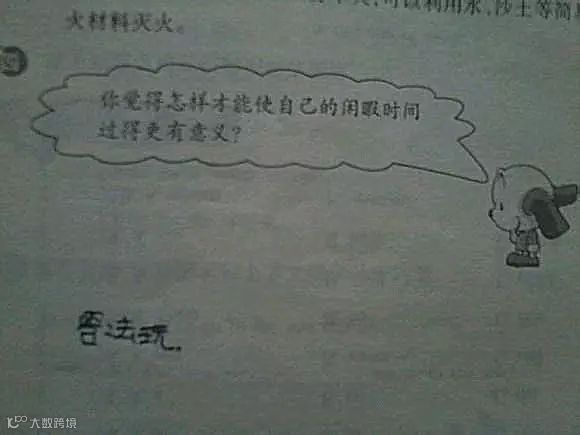 可以利用水、沙土等简
火材料灭火。
你觉得怎样才能使自己的闲暇时间
过得更有意义?
法玩.
大数跨境